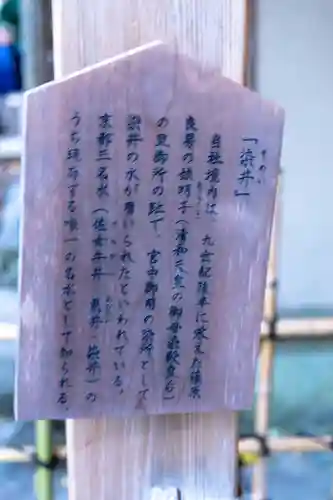 「染井」
そめい
当社境内は、九世紀後半に栄えた藤原
良房の娘明子（清和天皇の御母染殿皇后）
の里御所の趾で、宮中御用の染所として
染井の水が用いられたといわれている。
京都三名水（佐女牛井 県井・染井）の
うち現存する唯一の名水として知られる。